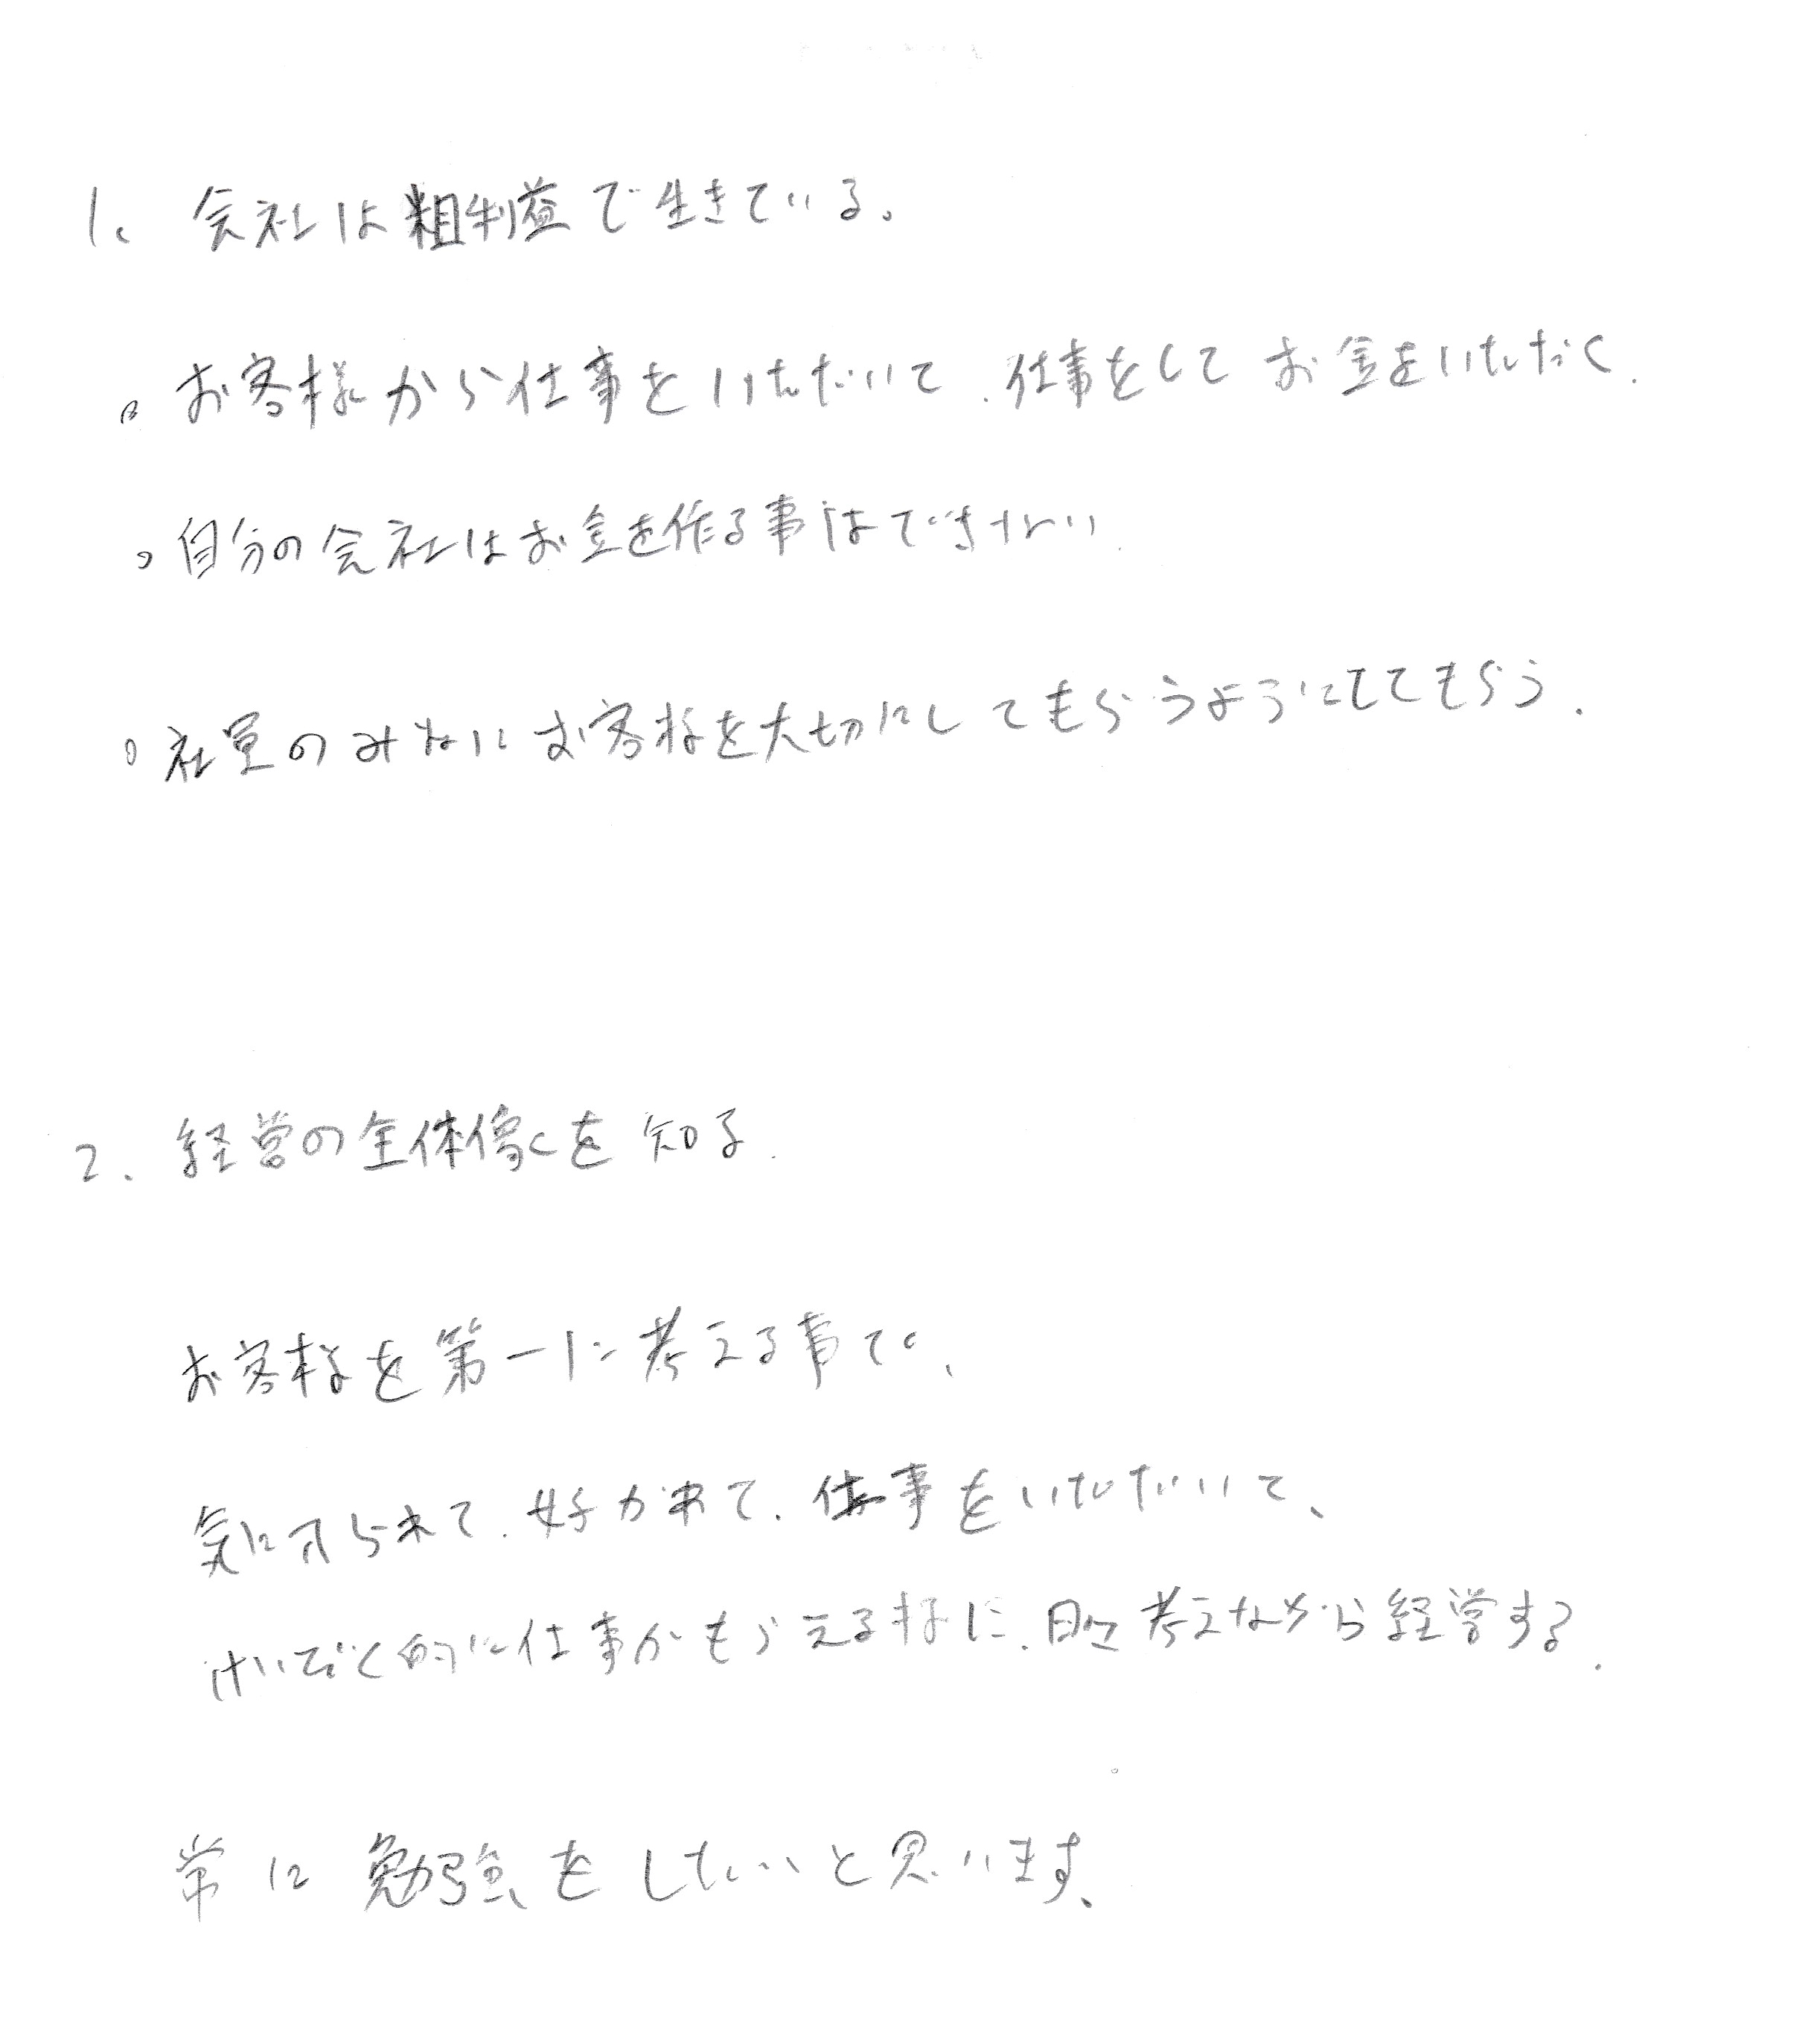 1、会社は粗利益で生きている。
。お客様から仕事をいただいて、仕事をしてお金をいただく.
。自分の会社はお金を作る事はできない.
。社員のみなにお客様を大切にしてもらうようにしてもらう.
2.経営の全体像を知る.
お客様を第一に考える事で、
気に入られて、好かれて、仕事をいただいて、
けいぞく的に仕事がもらえる様に、日々考えながら経営する.
常に勉強をしたいと思います、